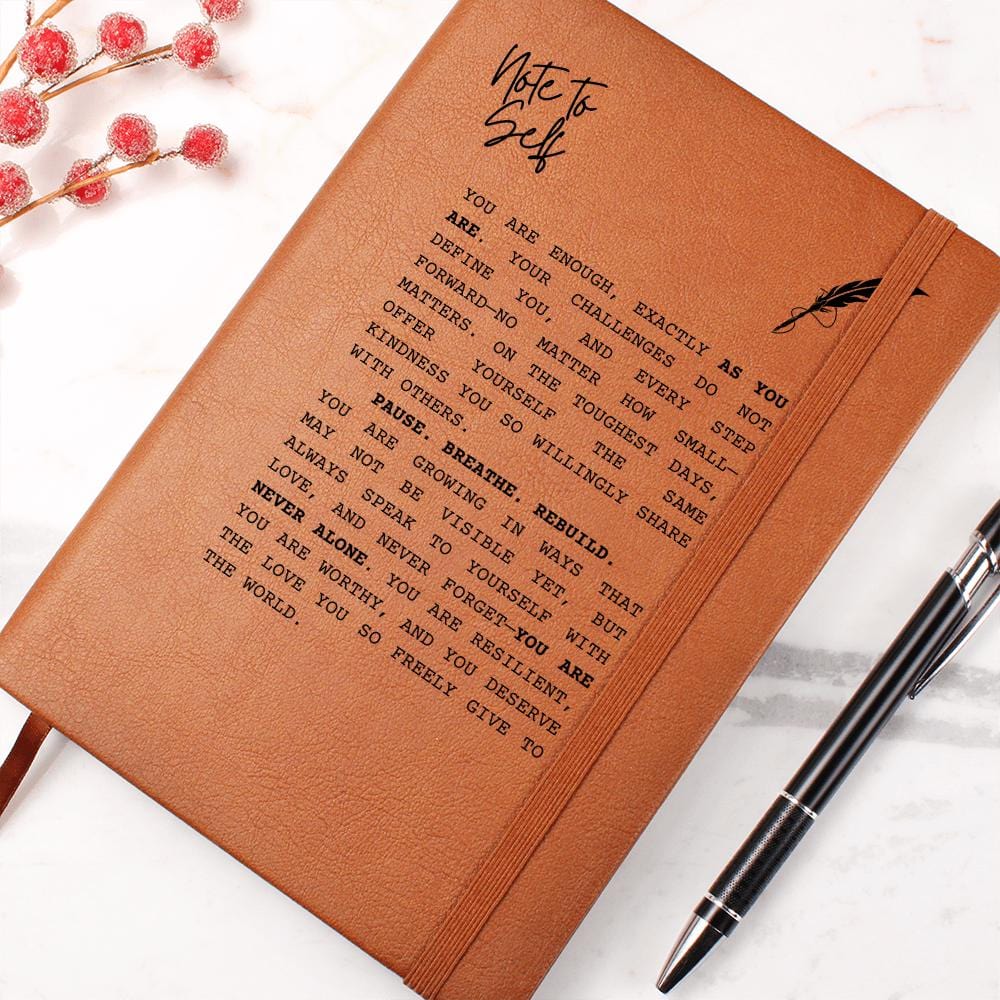 Note to
Self
YOU ARE ENOUGH, EXACTLY AS YOU
ARE. YOUR CHALLENGES DO NOT
DEFINE YOU, AND EVERY STEP
FORWARD—NO MATTER HOW SMALL—
MATTERS. ON THE TOUGHEST DAYS,
OFFER YOURSELF THE SAME
KINDNESS YOU SO WILLINGLY SHARE
WITH OTHERS.
PAUSE. BREATHE. REBUILD.
YOU ARE GROWING IN WAYS THAT
MAY NOT BE VISIBLE YET, BUT
ALWAYS SPEAK TO YOURSELF WITH
LOVE, AND NEVER FORGET—YOU ARE
NEVER ALONE. YOU ARE RESILIENT,
YOU ARE WORTHY, AND YOU DESERVE
THE LOVE YOU SO FREELY GIVE TO
THE WORLD.